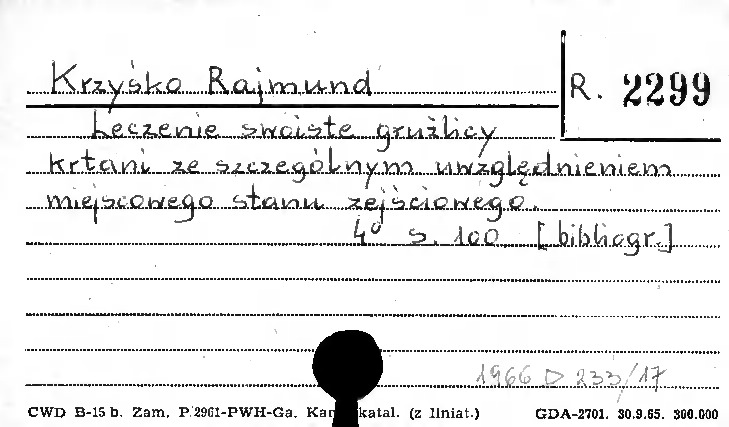 Krzyśko Rajmund R. 2299
Leczenie swoiste gruźlicy
krtani ze szczególnym uwzględnieniem
miejscowego stanu zejściowego.
4° s. 100 [bibliogr.]
1966 D 233/17
CWD B-15 b. Zam. P.2961-PWH-Ga. katal. (z liniat.) GDA-2701. 30.9.65. 300.000